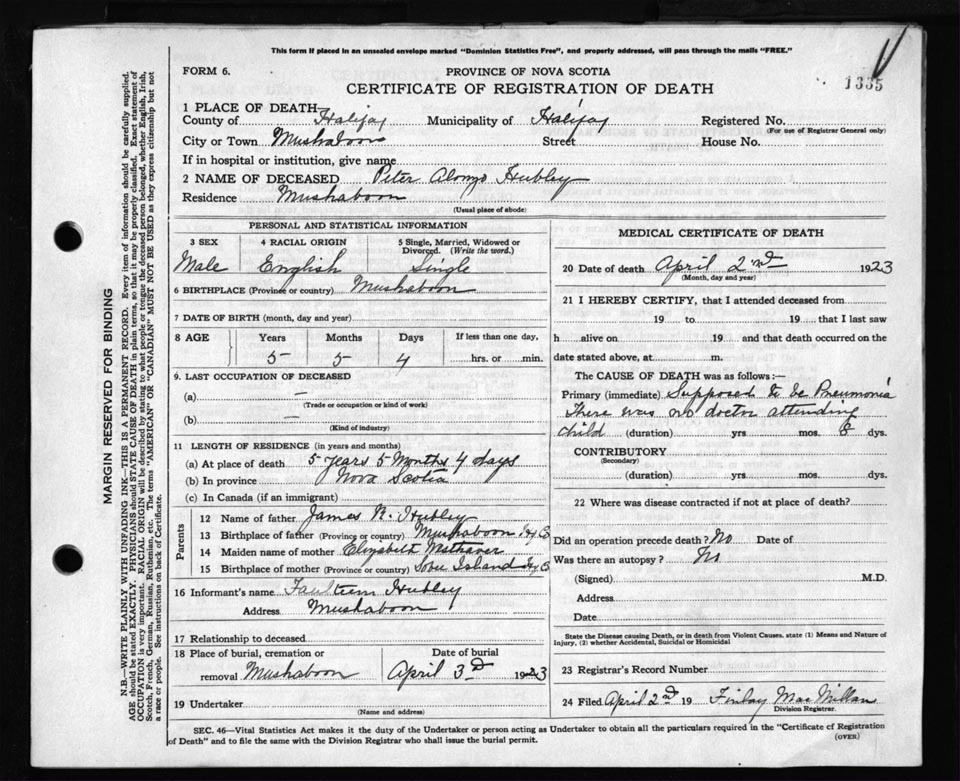 This form if placed in an unsealed envelope marked "Dominion Statistics Free", and properly addressed, will pass through the mails "FREE."
FORM 6.
PROVINCE OF NOVA SCOTIA
1335
CERTIFICATE OF REGISTRATION OF DEATH
1 PLACE OF DEATH
County of Halifax Municipality of Halifax Registered No.
(For use of Registrar General only)
City or Town Mushaboom Street House No.
If in hospital or institution, give name
2 NAME OF DECEASED Peter Alonzo Hubley
Residence Mushaboom
(Usual place of abode)
PERSONAL AND STATISTICAL INFORMATION
3 SEX 4 RACIAL ORIGIN 5 Single, Married, Widowed or Divorced. (Write the word.)
Male English Single
6 BIRTHPLACE (Province or country) Mushaboom
7 DATE OF BIRTH (month, day and year)
8 AGE Years Months Days If less than one day,
5 5 4 hrs. or min.
9. LAST OCCUPATION OF DECEASED
(a) —
(Trade or occupation or kind of work)
(b) —
(Kind of industry)
11 LENGTH OF RESIDENCE (in years and months)
(a) At place of death 5 years 5 Months 4 days
(b) In province Nova Scotia
(c) In Canada (if an immigrant)
Parents
12 Name of father James R. Hubley
13 Birthplace of father (Province or country) Mushaboom Hx Co
14 Maiden name of mother Elizabeth
15 Birthplace of mother (Province or country) Island Hx Co
16 Informant's name Hubley
Address Mushaboom
17 Relationship to deceased
18 Place of burial, cremation or removal Mushaboom
Date of burial April 3rd 1923
19 Undertaker
(Name and address)
MEDICAL CERTIFICATE OF DEATH
20 Date of death April 2nd 1923
(Month, day and year)
21 I HEREBY CERTIFY, that I attended deceased from
19 to 19 that I last saw
h alive on 19 and that death occurred on the
date stated above, at m.
The CAUSE OF DEATH was as follows:—
Primary (immediate) Supposed to be Pneumonia
There was no doctor attending
child (duration) yrs mos. 6 dys.
CONTRIBUTORY
(Secondary)
(duration) yrs. mos. dys.
22 Where was disease contracted if not at place of death?
Did an operation precede death? No Date of
Was there an autopsy? No
(Signed) M.D.
Address
Date
State the Disease causing Death, or in death from Violent Causes, state (1) Means and Nature of
Injury, (2) whether Accidental, Suicidal or Homicidal
23 Registrar's Record Number
24 Filed April 2nd 19 Finlay MacMillan
Division Registrar.
SEC. 46—Vital Statistics Act makes it the duty of the Undertaker or person acting as Undertaker to obtain all the particulars required in the "Certificate of Registration
of Death" and to file the same with the Division Registrar who shall issue the burial permit.
(OVER)
MARGIN RESERVED FOR BINDING
N.B.—WRITE PLAINLY WITH UNFADING INK—THIS IS A PERMANENT RECORD. Every item of information should be carefully supplied.
AGE should be stated EXACTLY. PHYSICIANS should STATE CAUSE OF DEATH in plain terms, so that it may be properly classified. Exact statement of
OCCUPATION is very important. RACIAL ORIGIN will be described by stating to what people or tongue the deceased person belonged, whether English, Irish,
Scotch, French, German, Russian, Ruthenian, etc. The terms "AMERICAN" or "CANADIAN" MUST NOT BE USED as they express citizenship but not
a race or people. See instructions on back of Certificate.